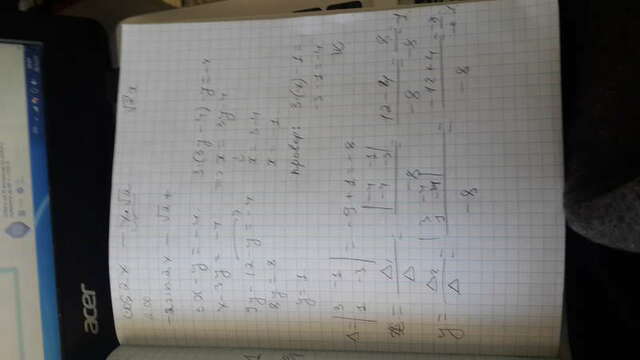 acer
cos 2x - x·√2    √2x
-2sin2x - √2
3x - y = -4    3·(3y-4)-y=-4
x - 3y = -4    => x = 3y-4
9y - 12 - y = -4    x = 3-4
8y = 8    x = -1
y = 1    провер: 3·(-1) - 1 =
-3 - 1 = -4
Δ = | 3 -1 | = -9 + 1 = -8
| 1 -3 |
x = Δ₁/Δ = | -4 -1 | / -8 = 12-4/-8 = 8/-8 = -1
| -4 -3 |
y = Δ₂/Δ = | 3 -4 | / -8 = -12+4/-8 = -8/-8
| 1 -4 |